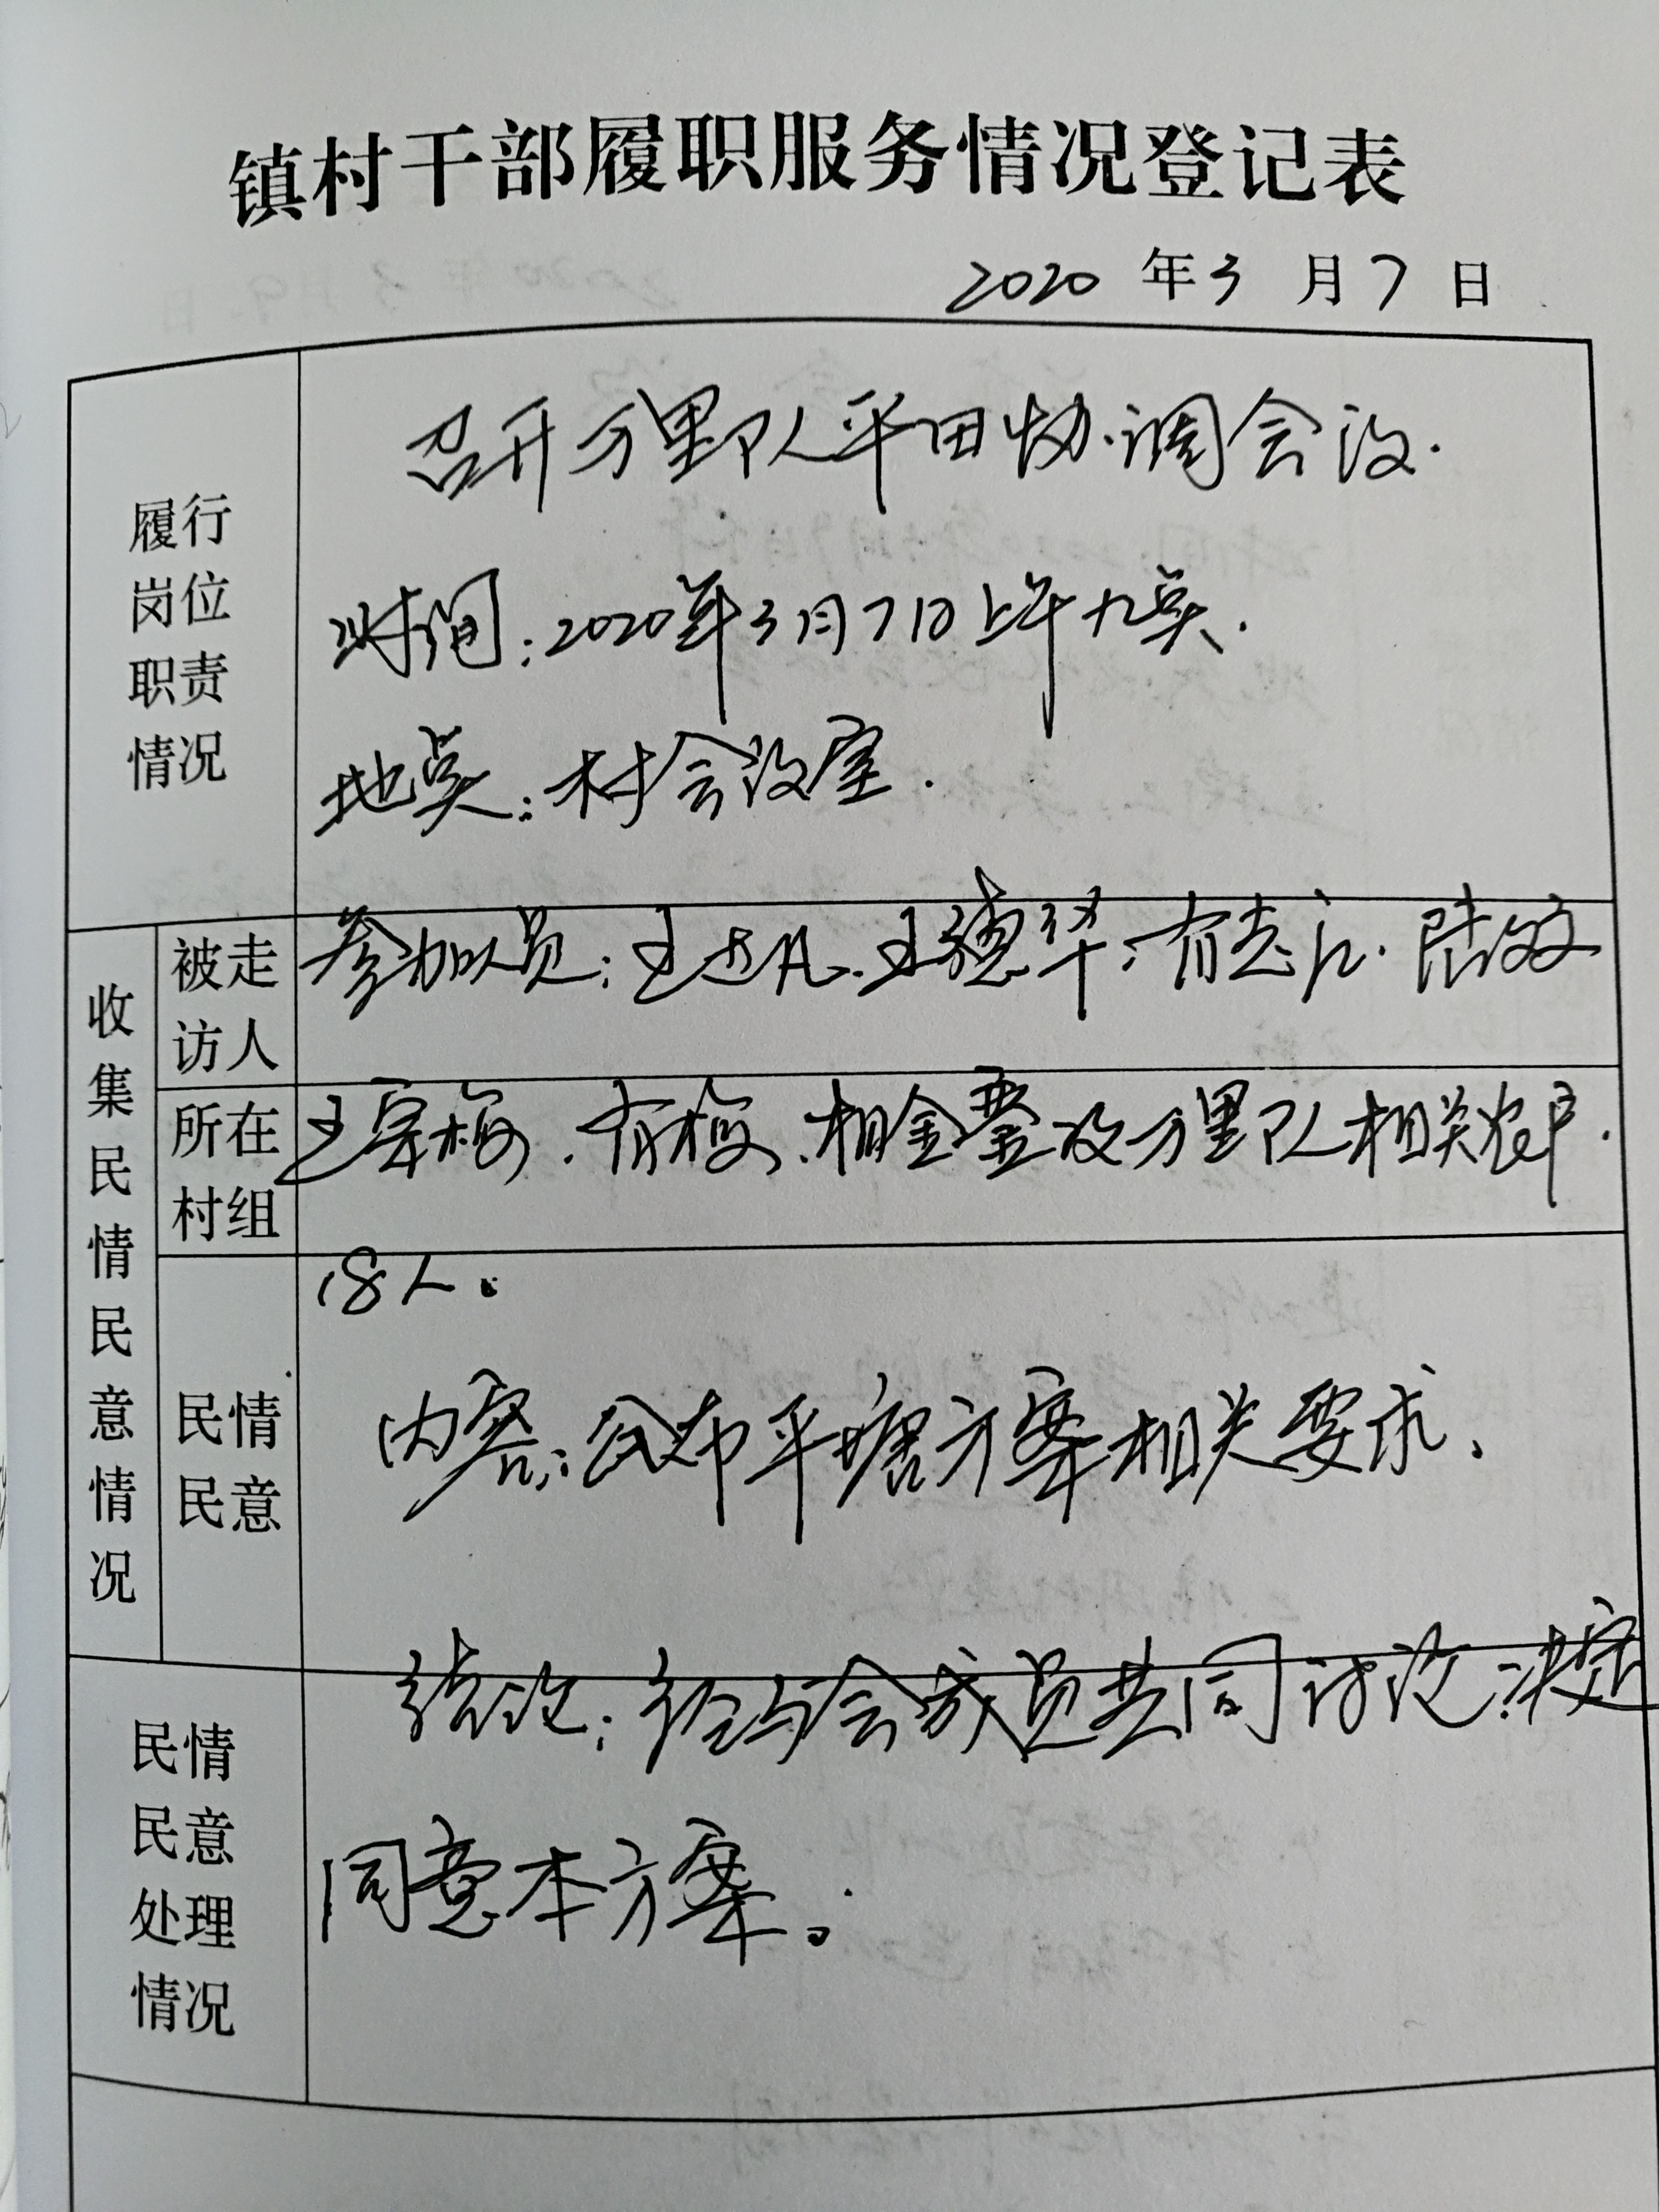 镇村干部履职服务情况登记表
2020年3月7日
履行
岗位
职责
情况
召开万里队平田协调会议.
时间:2020年3月7日上午九点.
地点:村会议室.
收集民情民意情况
被走
访人
参加人员:王达凡.王德华.有志江.陆效文
所在
村组
王翠梅.有梅、相金 及万里队相关农户.
18人.
民情
民意
内容:公布平塘方案相关要求、
民情
民意
处理
情况
:经与会成员共同讨论.决定
同意本方案。